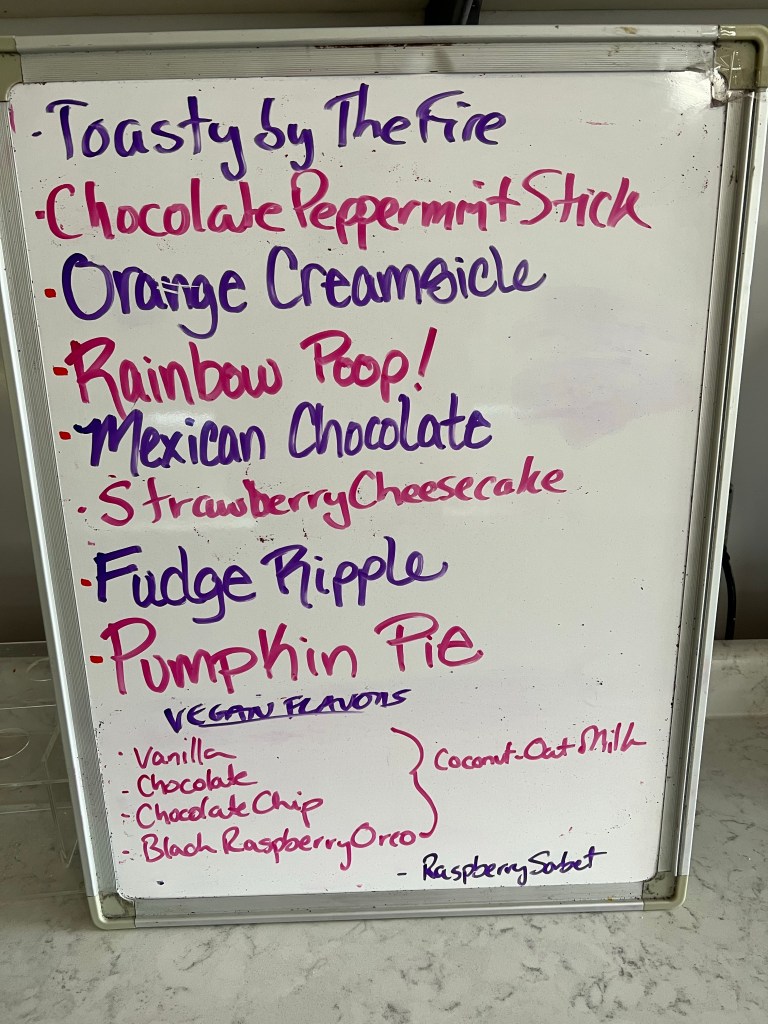 · Toasty by The Fire
· Chocolate Peppermint Stick
· Orange Creamsicle
· Rainbow Poop!
· Mexican Chocolate
· Strawberry Cheesecake
· Fudge Ripple
· Pumpkin Pie
VEGAN FLAVORS
· Vanilla
- Chocolate
- Chocolate Chip
- Black Raspberry Oreo
Coconut-Oat Milk
- Raspberry Sorbet